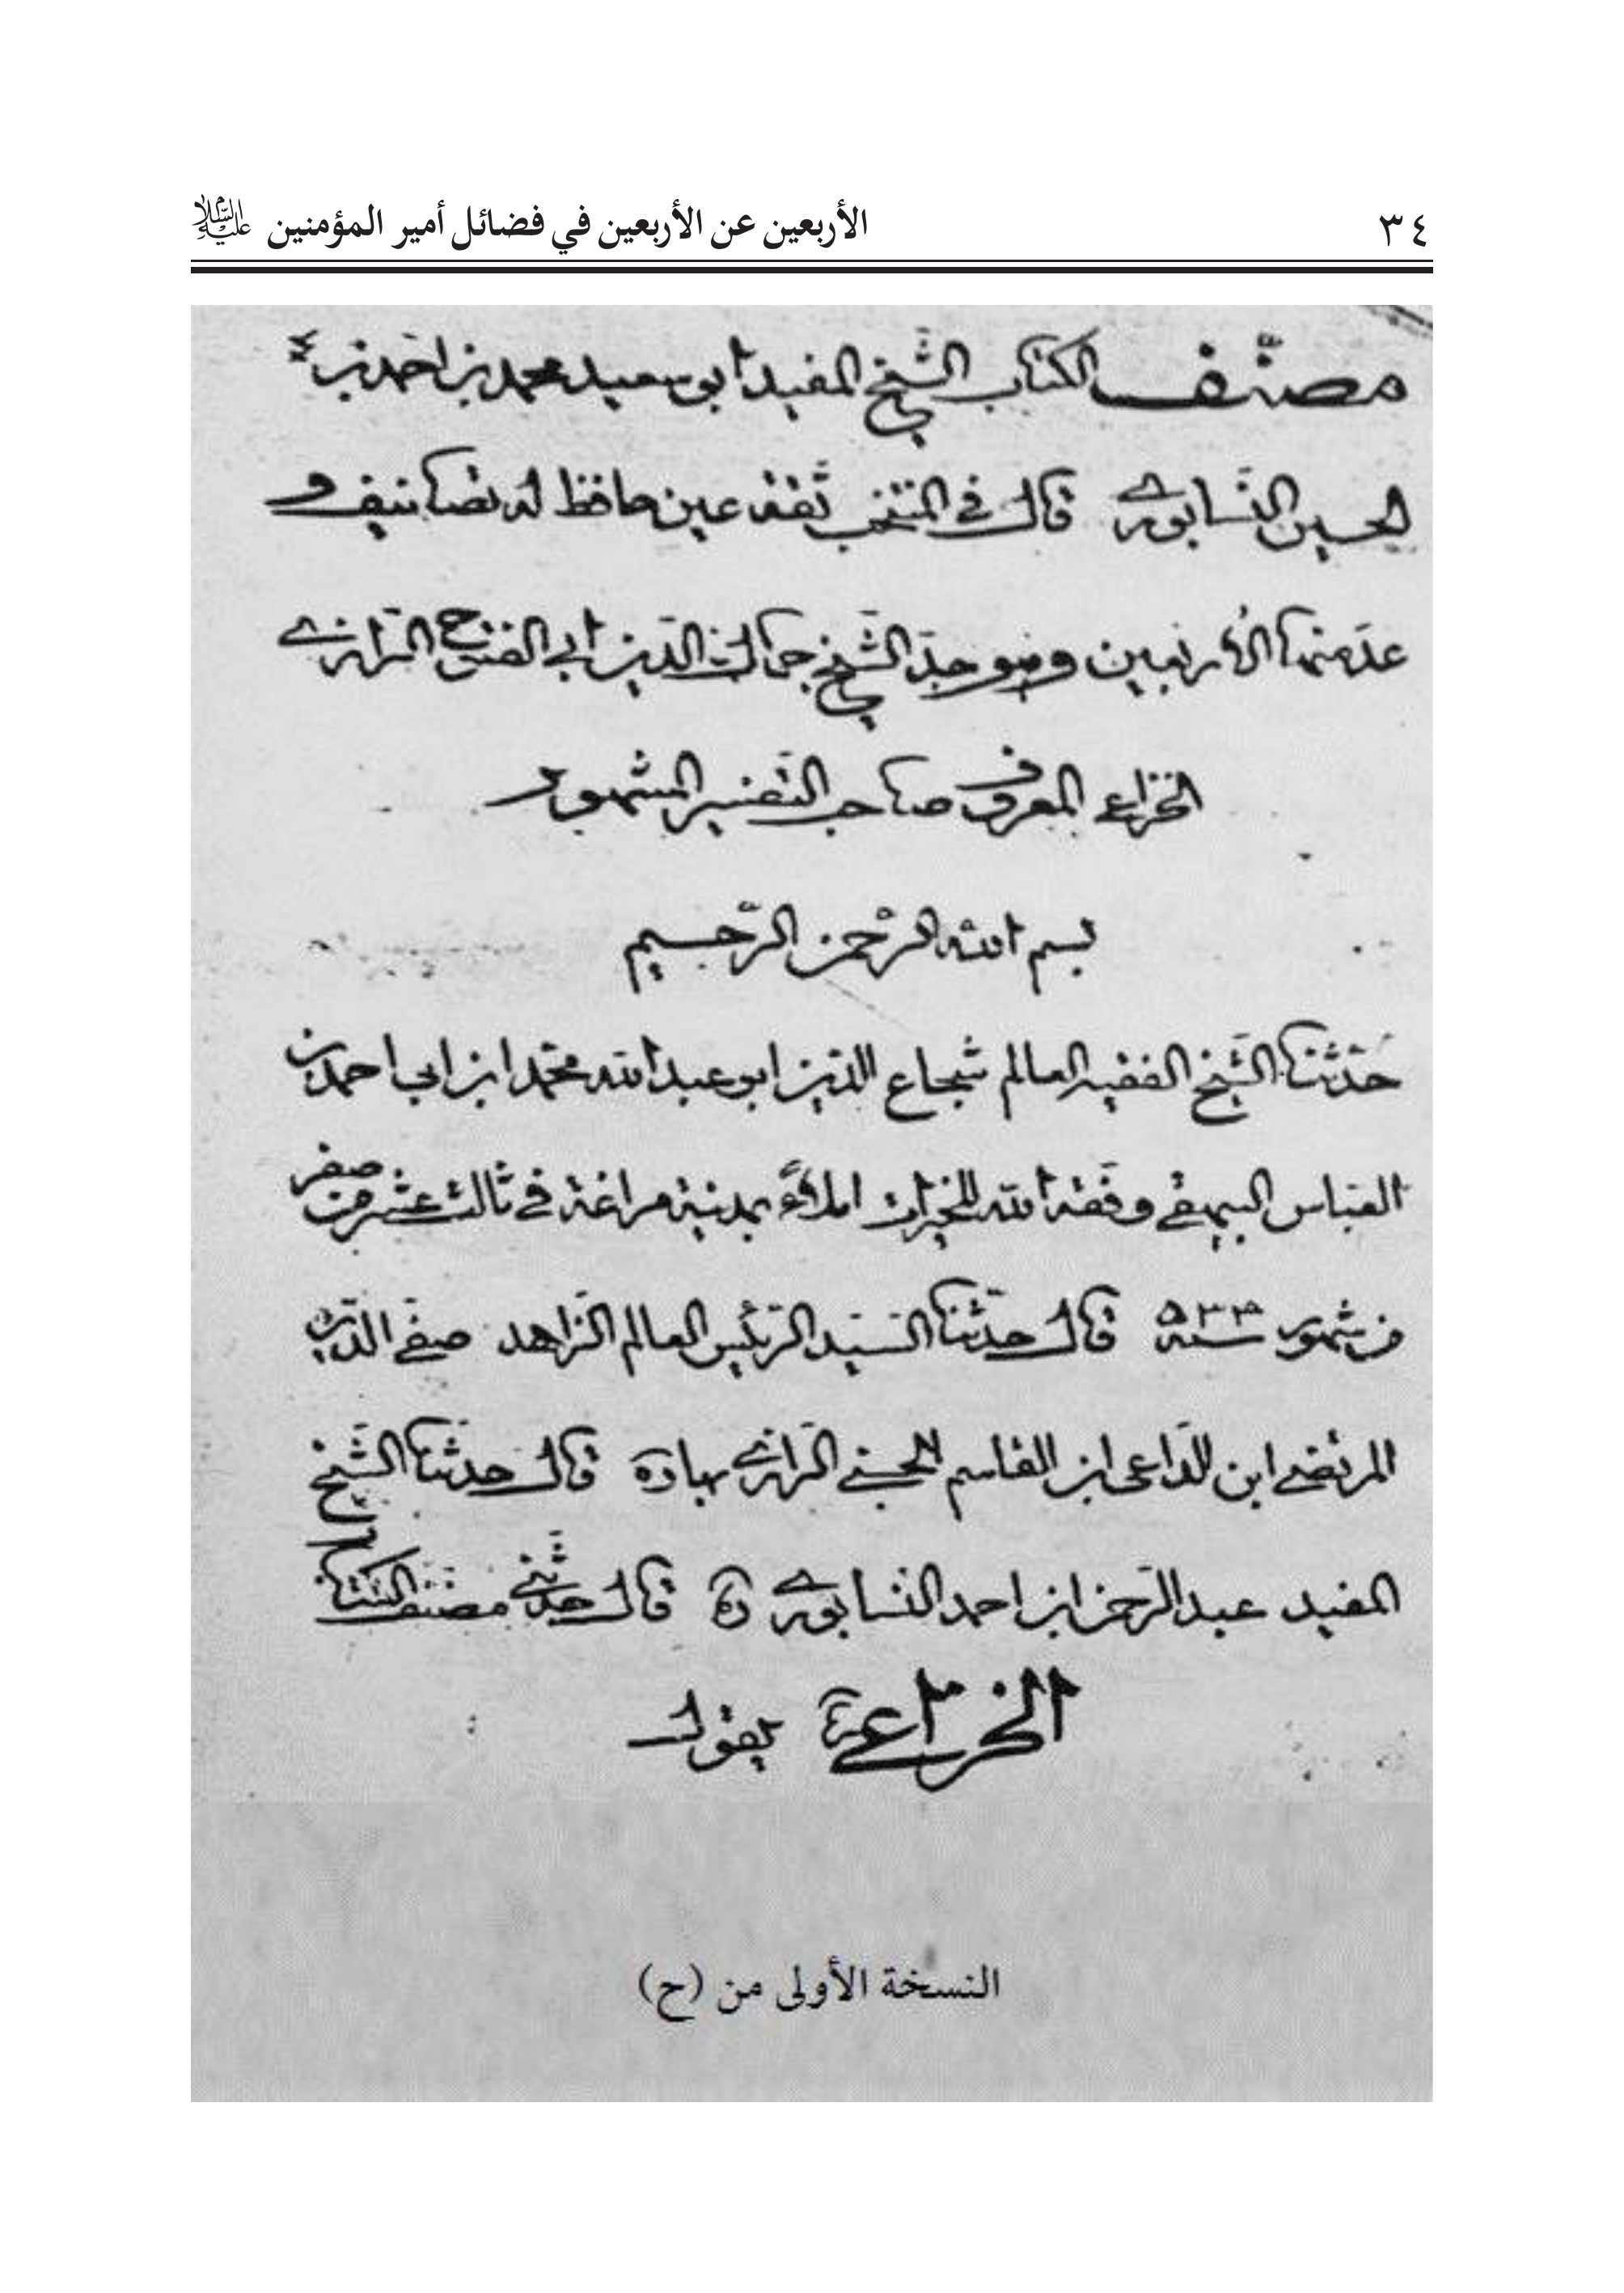 ٣٤
الأربعين عن الأربعين في فضائل أمير المؤمنين عليه السلام
مصنّف الكتاب الشيخ المفيد ابو سعيد محمد بن احمد بن
الحسين النسابوري قال في المنتخب ثقة عين حافظ له تصانيف و
عدّ منها الأربعين وهو جدّ الشيخ جمال الدين ابي الفتوح الرازي
الخزاعي المعروف صاحب التفسير المشهور
بسم الله الرحمن الرّحيم
حدّثنا الشيخ الفقيه العالم شجاع الدين ابو عبد الله محمّد ابن ابي احمد بن
العباس البيهقي وفّقه الله للخيرات املاءً بمدينة مراغة في ثالث عشر من صفر
من شهور سنة ٥٣٣ قال حدّثنا السيّد الرّئيس العالم الزّاهد صفي الدّين
المرتضى ابن الداعي ابن القاسم الحسني الرازي قال حدّثنا الشيخ
المفيد عبد الرّحمن ابن احمد النسابوري ره قال حدّثني مصنّف الكتاب
الخزاعي يقول
النسخة الأولى من (ح)